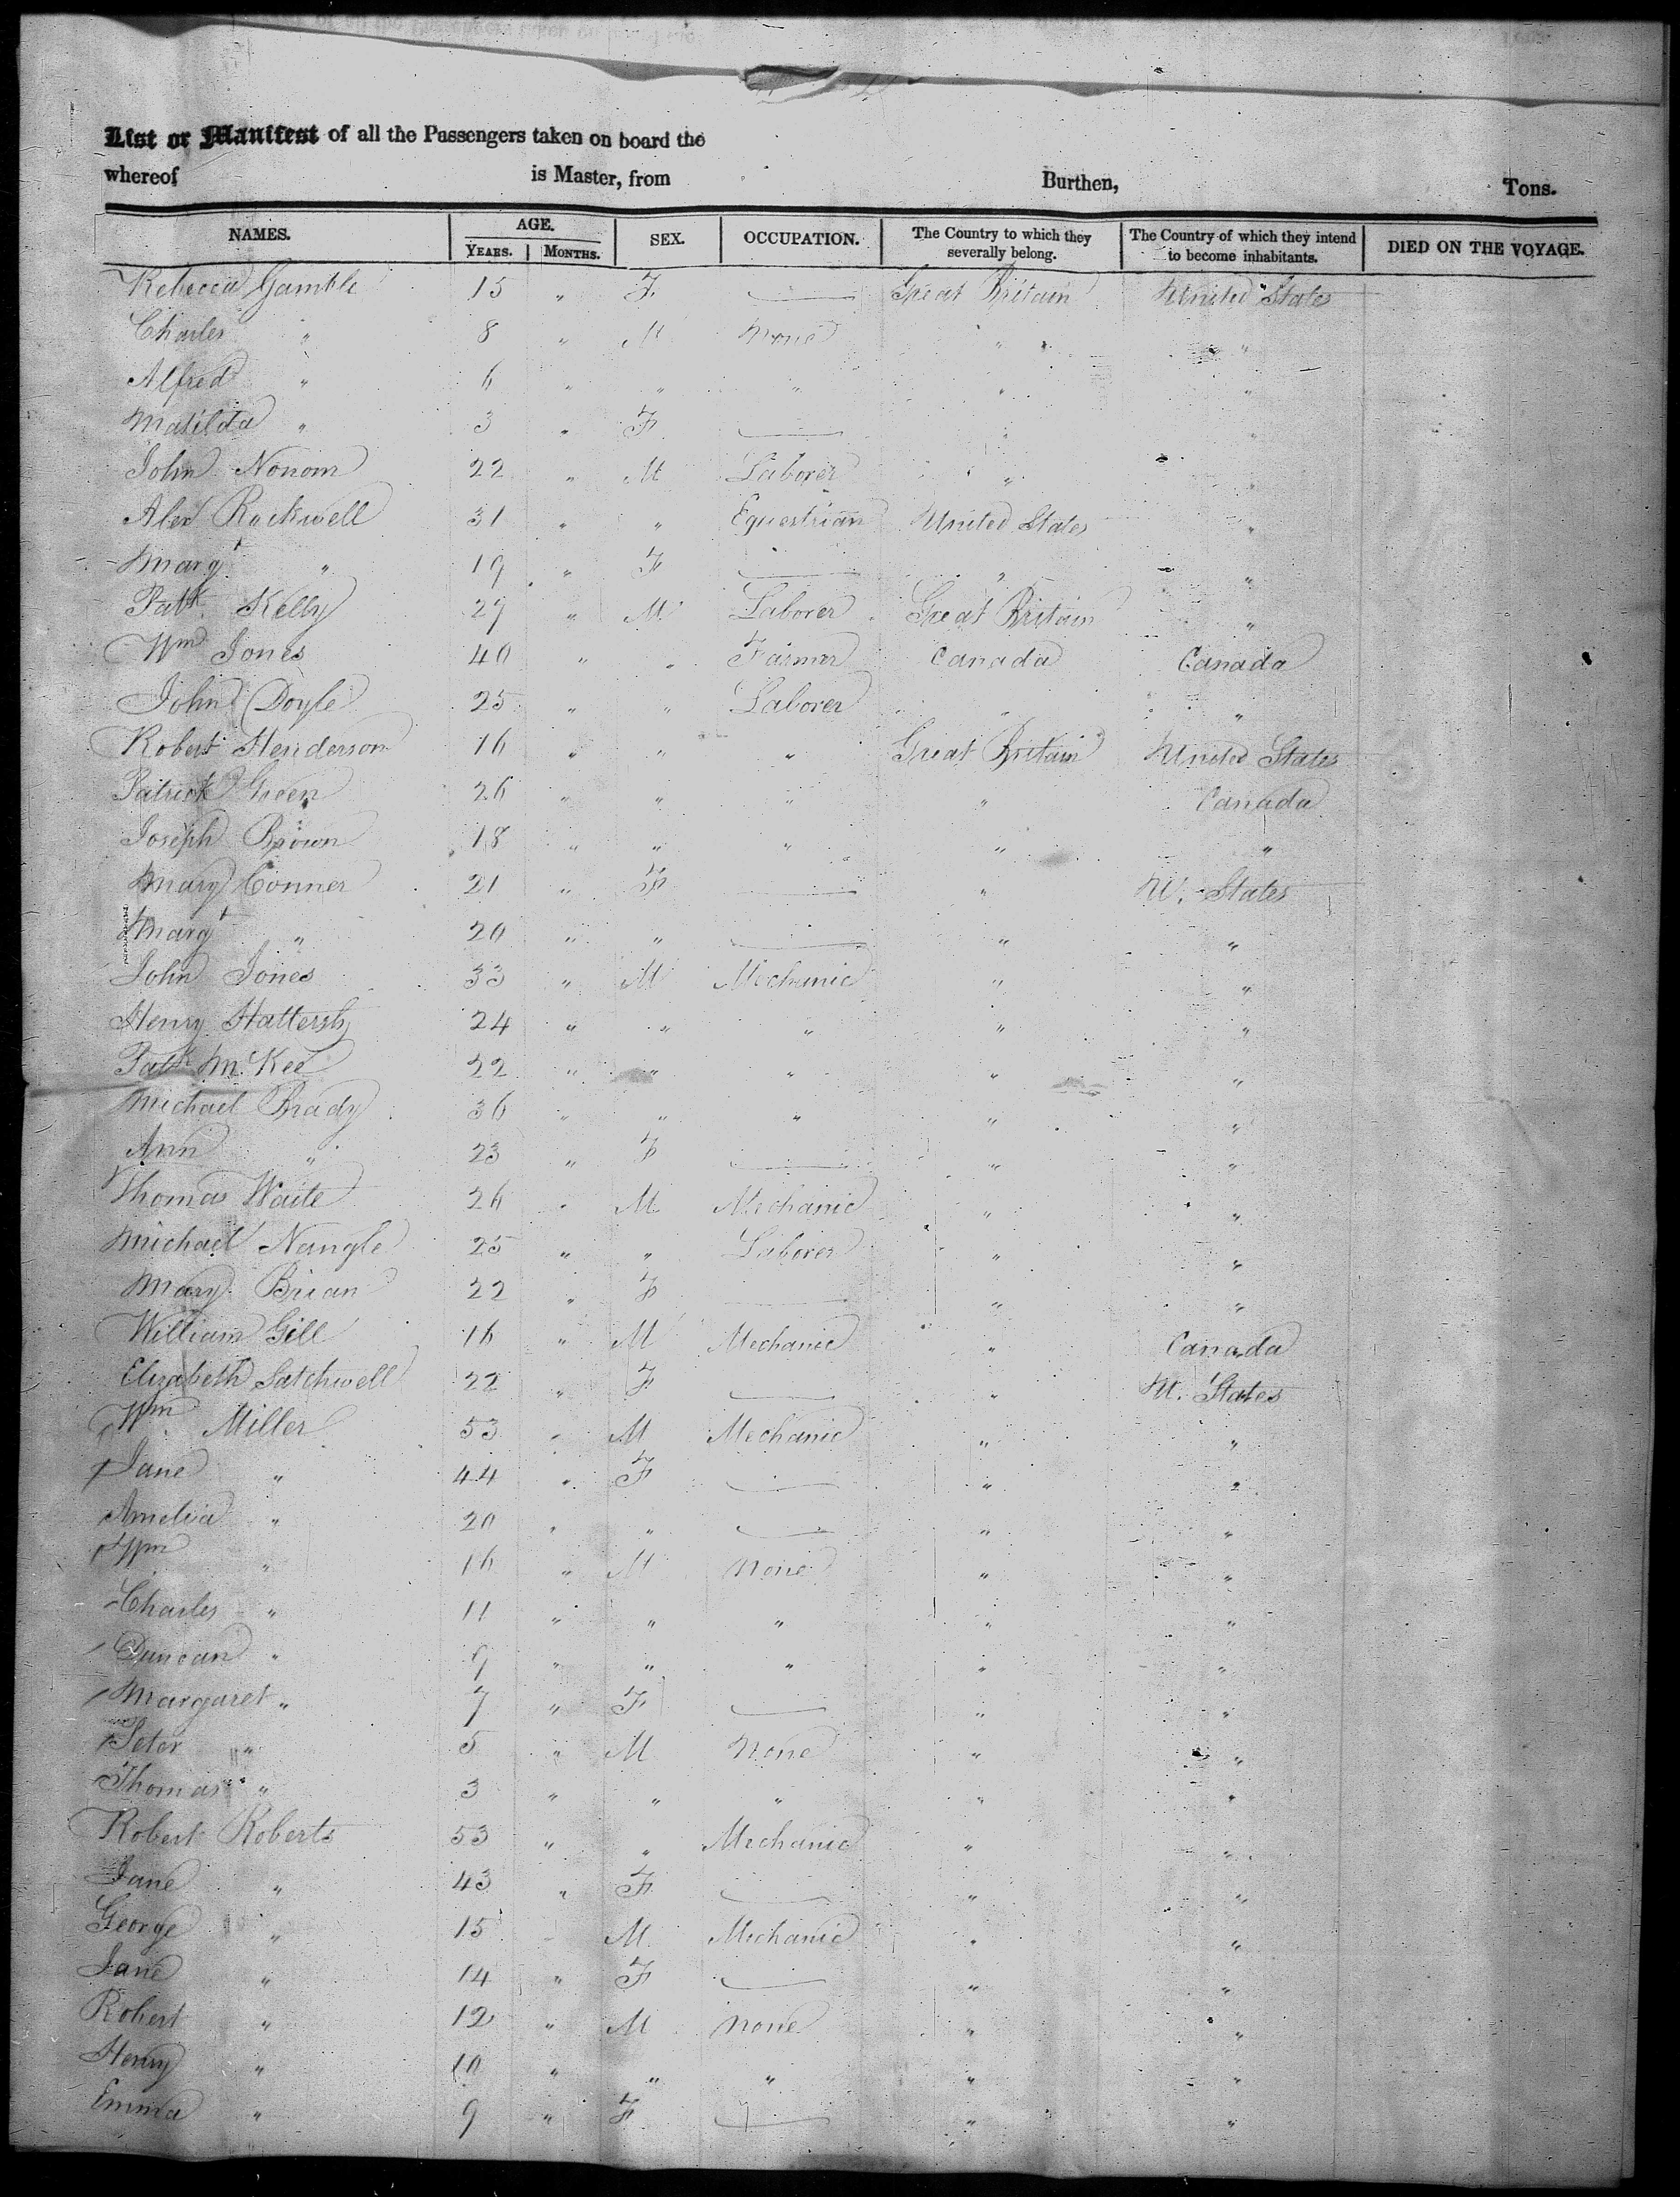 List or Manifest of all the Passengers taken on board the
whereof is Master, from Burthen, Tons.
NAMES. AGE. YEARS. MONTHS. SEX. OCCUPATION. The Country to which they severally belong. The Country of which they intend to become inhabitants. DIED ON THE VOYAGE.
Rebecca Gamble 15 " F — Great Britain United States
Charles " 8 " M None " "
Alfred " 6 " " " " "
Matilda " 3 " F — " "
John Nonom 22 " M Laborer " "
Alex Rockwell 31 " " Equestrian United States "
Margt " 19 " F — " "
Patk Kelly 29 " M Laborer Great Britain "
Wm Jones 40 " " Farmer Canada Canada
John Doyle 25 " " Laborer " "
Robert Henderson 16 " " " Great Britain United States
Patrick Green 26 " " " " Canada
Joseph Brown 18 " " " " "
Mary Conner 21 " F — " U. States
Margt " 20 " " — " "
John Jones 33 " M Mechanic " "
Henry Hattersly 24 " " " " "
Patk McKee 22 " " " " "
Michael Brady 36 " " " " "
Ann " 23 " F — " "
Thomas Waite 26 " M Mechanic " "
Michael Nangle 25 " " Laborer " "
Mary Brian 22 " F — " "
William Gill 16 " M Mechanic " Canada
Elizabeth Satchwell 22 " F — " U. States
Wm Miller 53 " M Mechanic " "
Jane " 44 " F — " "
Amelia " 20 " " — " "
Wm " 16 " M None " "
Charles " 11 " " " " "
Duncan " 9 " " " " "
Margaret " 7 " F — " "
Peter " 5 " M None " "
Thomas " 3 " " " " "
Robert Roberts 53 " " Mechanic " "
Jane " 43 " F — " "
George " 15 " M Mechanic " "
Jane " 14 " F — " "
Robert " 12 " M None " "
Henry " 10 " " " " "
Emma " 9 " F — " "